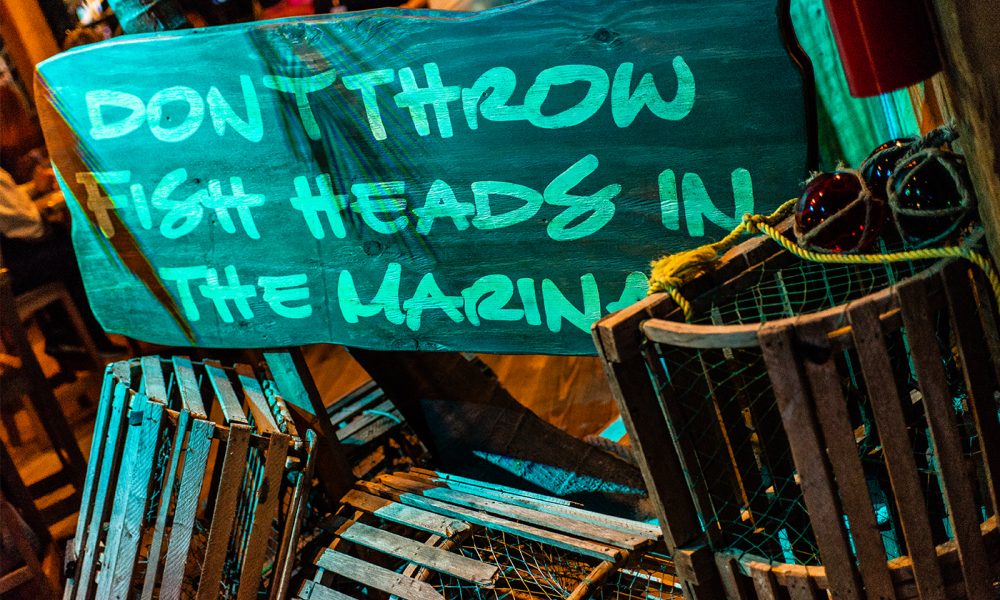 DON'T THROW
FISH HEADS IN
THE MARINA